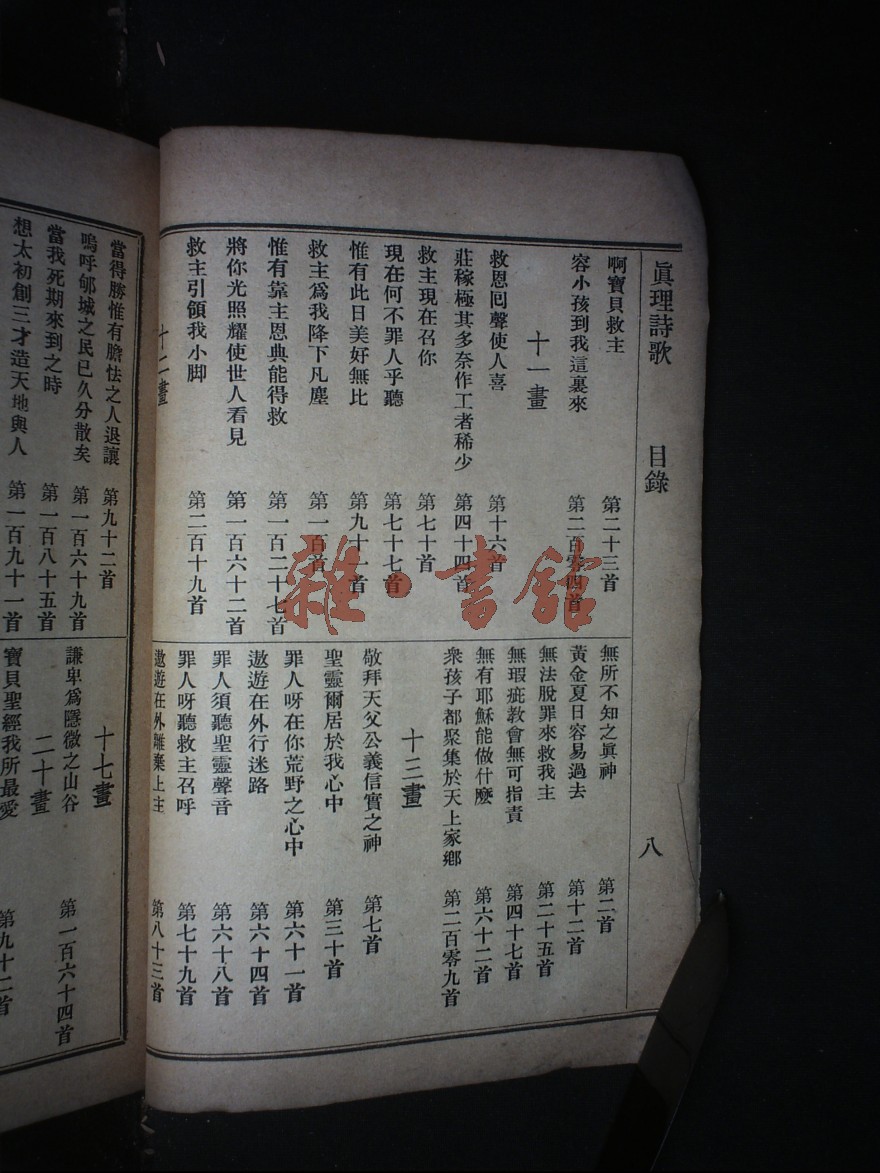 眞理詩歌 目錄 八
啊寶貝救主 第二十三首
容小孩到我這裏來 第二百零四首
十一畫
救恩囘聲使人喜 第十六首
莊稼極其多奈作工者稀少 第四十四首
救主現在召你 第七十首
現在何不罪人乎聽 第七十七首
惟有此日美好無比 第九十一首
救主爲我降下凡塵 第一百首
惟有靠主恩典能得救 第一百二十七首
將你光照耀使世人看見 第一百六十二首
救主引領我小脚 第二百十九首
十二畫
無所不知之眞神 第二首
黃金夏日容易過去 第十二首
無法脫罪來救我主 第二十五首
無瑕疵教會無可指責 第四十七首
無有耶穌能做什麽 第六十二首
衆孩子都聚集於天上家鄉 第二百零九首
十三畫
敬拜天父公義信實之神 第七首
聖靈爾居於我心中 第三十首
罪人呀在你荒野之心中 第六十一首
遨遊在外行迷路 第六十四首
罪人須聽聖靈聲音 第六十八首
罪人呀聽救主召呼 第七十九首
遨遊在外離棄上主 第八十三首
當得勝惟有膽怯之人退讓 第九十二首
嗚呼郇城之民已久分散矣 第一百六十九首
當我死期來到之時 第一百八十五首
想太初創三才造天地與人 第一百九十一首
十七畫
謙卑爲隱微之山谷 第一百六十四首
二十畫
寶貝聖經我所最愛 第九十二首
雜·書館